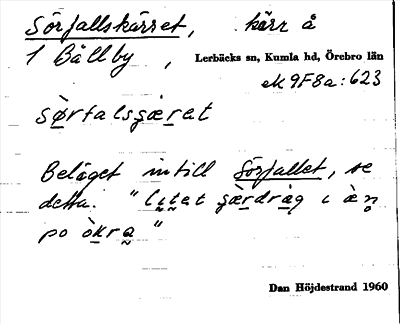 Sörjallskärret, kärr å
1 Bällby , Lerbäcks sn, Kumla hd, Örebro län
ek 9F8a:623
sø̀rfalsɟæret
Beläget intill Sörfallet, se
detta. "litet ɟærdrag i æn
po òkra"
Dan Höjdestrand 1960